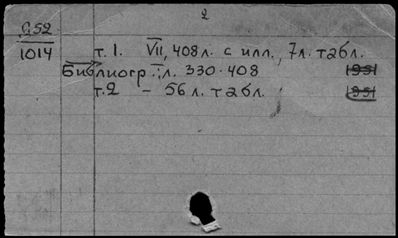 2
С52
1014 т.1. VII, 408л. с илл., 7л. табл.
Библиогр.: л. 330-408 1951
т.2 – 56 л. табл. 1951